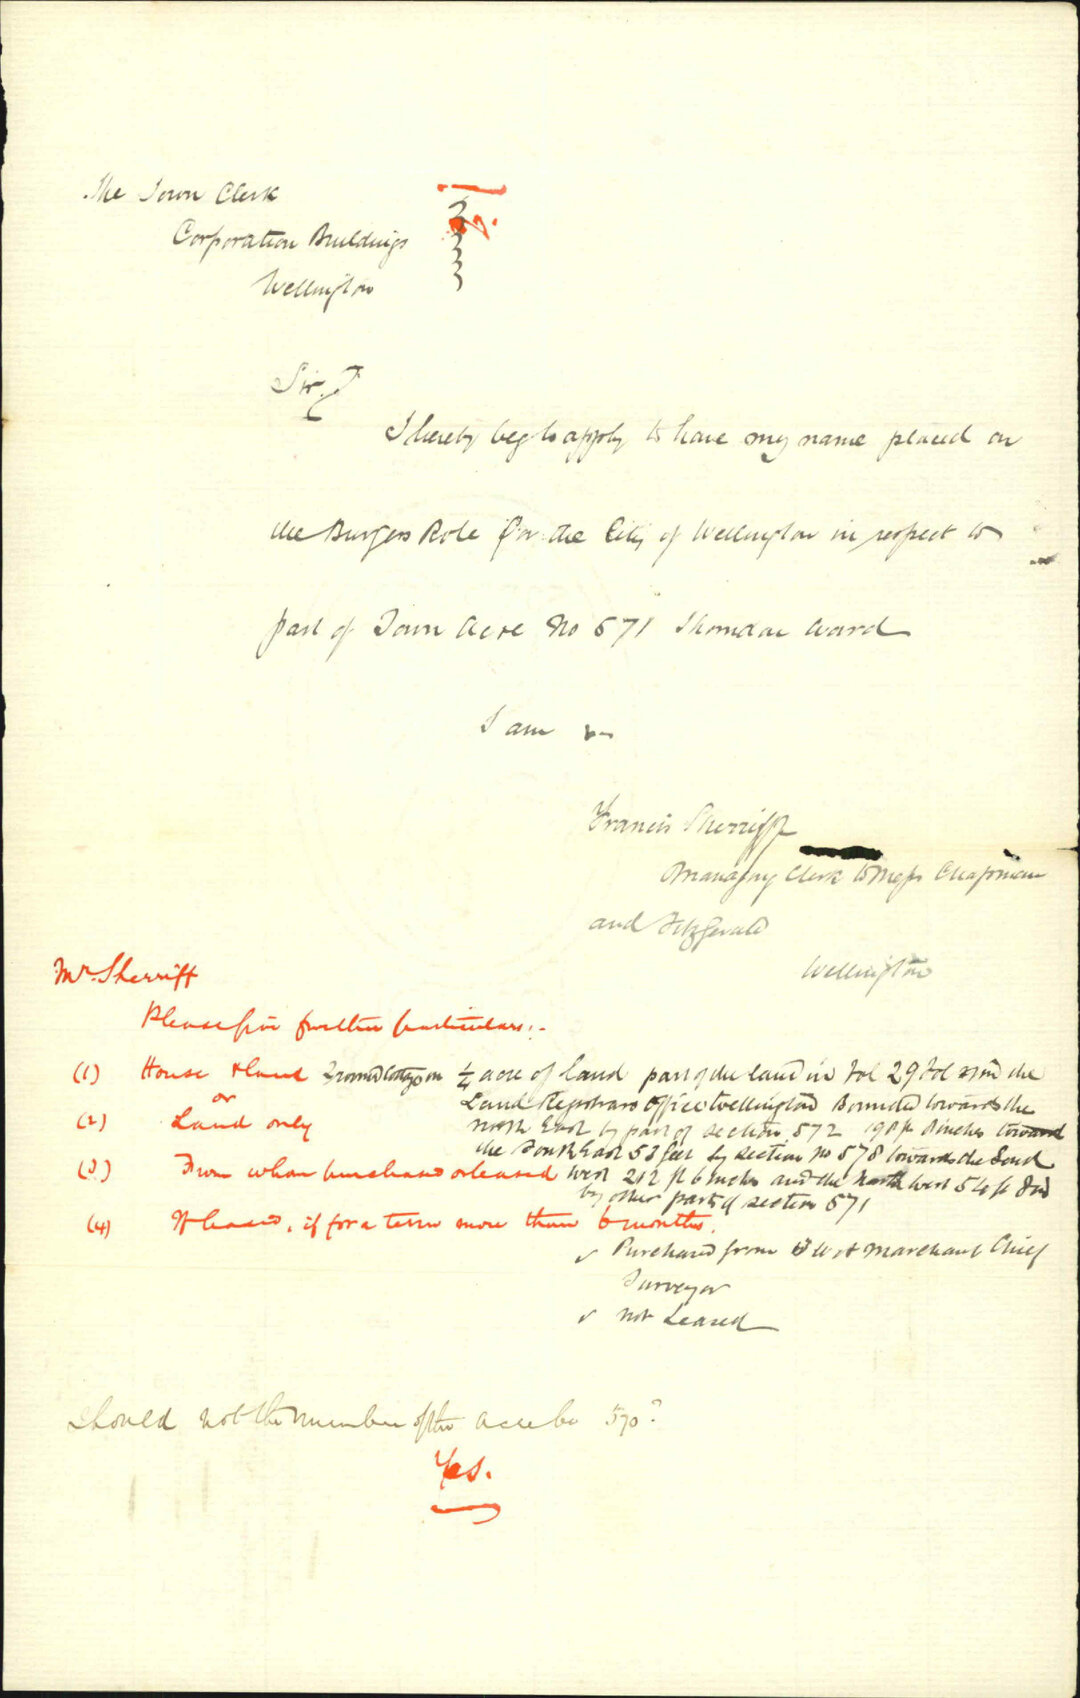 The Town Clerk
Corporation Buildings
Wellington
Sir,
I hereby beg to apply to have my name placed on
the Burgess Role for the City of Wellington in respect to
part of Town Acre No 571 Thorndon Ward
I am
Francis Sherriff
Managing Clerk to Messrs Chapman
and Fitzgerald
Wellington
Mr. Sherriff
Please give further particulars:-
(1) House & land 2 roomed Cottage on 1/4 acre of land part of the land in Vol 29 Fol in the
or
Land Registrars Office Wellington Bounded towards the
(2) Land only
North East by part of section 572 198 ft 8 inches toward
the South East 53 feet by section No 578 towards the South
(3) From whom purchased or leased
West 212 ft 6 inches and the North West 54 ft
by other part of section 571
(4) If leased, if for a term more than 6 months.
✓ Purchased from J W A Marchant Chief
Surveyor
✓ Not Leased
Should not the number of the acre be 570?
Yes.